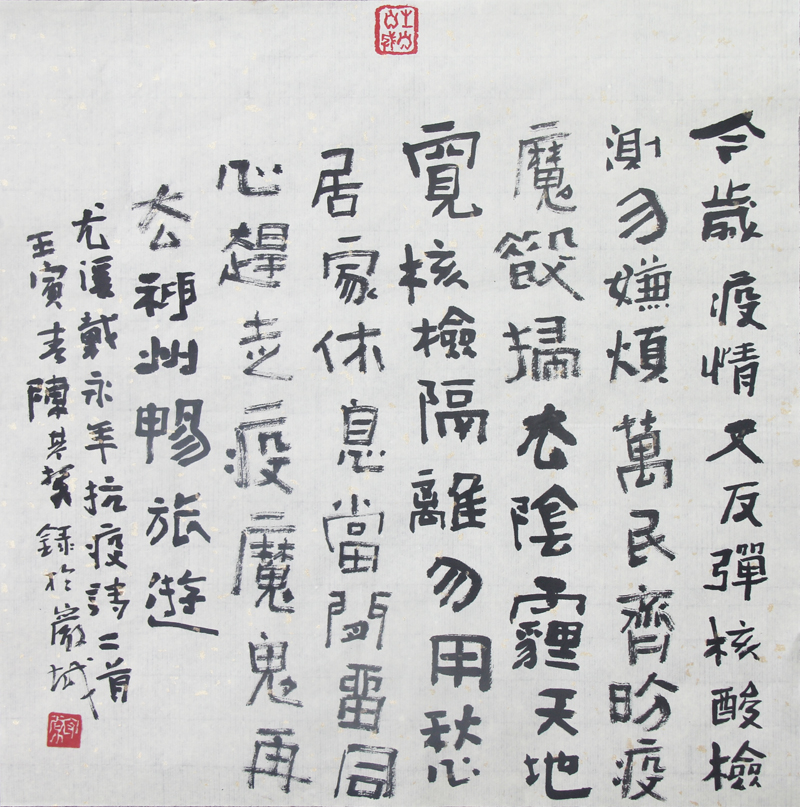 今歲疫情又反彈核酸檢
測勿嫌煩萬民齊盼疫
魔毀掃去陰霾天地
寬核檢隔離勿用愁
居家休息當閒畱同
心趕走疫魔鬼再
去神州暢旅遊
尤溪戴永年抗疫詩二首
壬寅春陳其錄於巖城